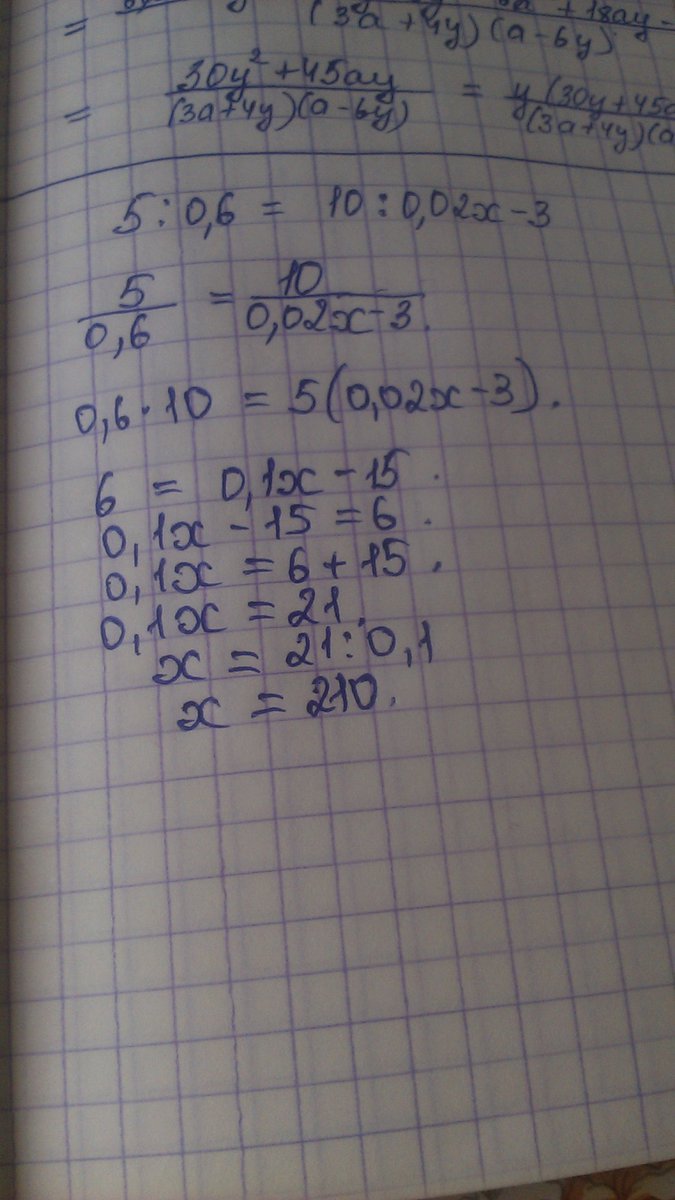 = + 18ay -
(3a + 4y)(a - 6y)
= 30y² + 45ay / (3a + 4y)(a - 6y) = y(30y + 45a / (3a + 4y)(a
5 : 0,6 = 10 : 0,02x - 3
5 / 0,6 = 10 / 0,02x - 3.
0,6 · 10 = 5(0,02x - 3).
6 = 0,1x - 15.
0,1x - 15 = 6.
0,1x = 6 + 15.
0,1x = 21.
x = 21 : 0,1
x = 210.